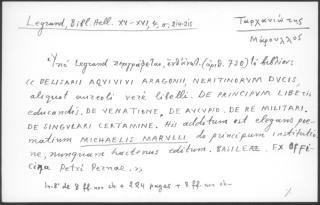 Legrand, Bibl. Hell. XV-XVI, 4, σ. 214-215
Ταρχανιώτης
Μάρουλλος
Ὑπὸ Legrand περιγράφεται, (ἀρ. 730) τὸ βιβλίον:
« BELISARII AQVIVIVI ARAGONII, NERITINORUM DVCIS,
aliquot aureoli verè libelli. DE PRINCIPVM LIBERIS
educandis. DE VENATIONE. DE AVCVPIO. DE RE MILITARI.
DE SINGULARI CERTAMINE. His additum est elegans poe-
matium MICHAELIS MARVLLI de principum institutio
ne, nunquam hactenus editum. BASILEAE. EX OFFI
cina Petri Pernae. »
In-8° de 8 ff. non ch. + 224 pages + 8 ff. non ch.